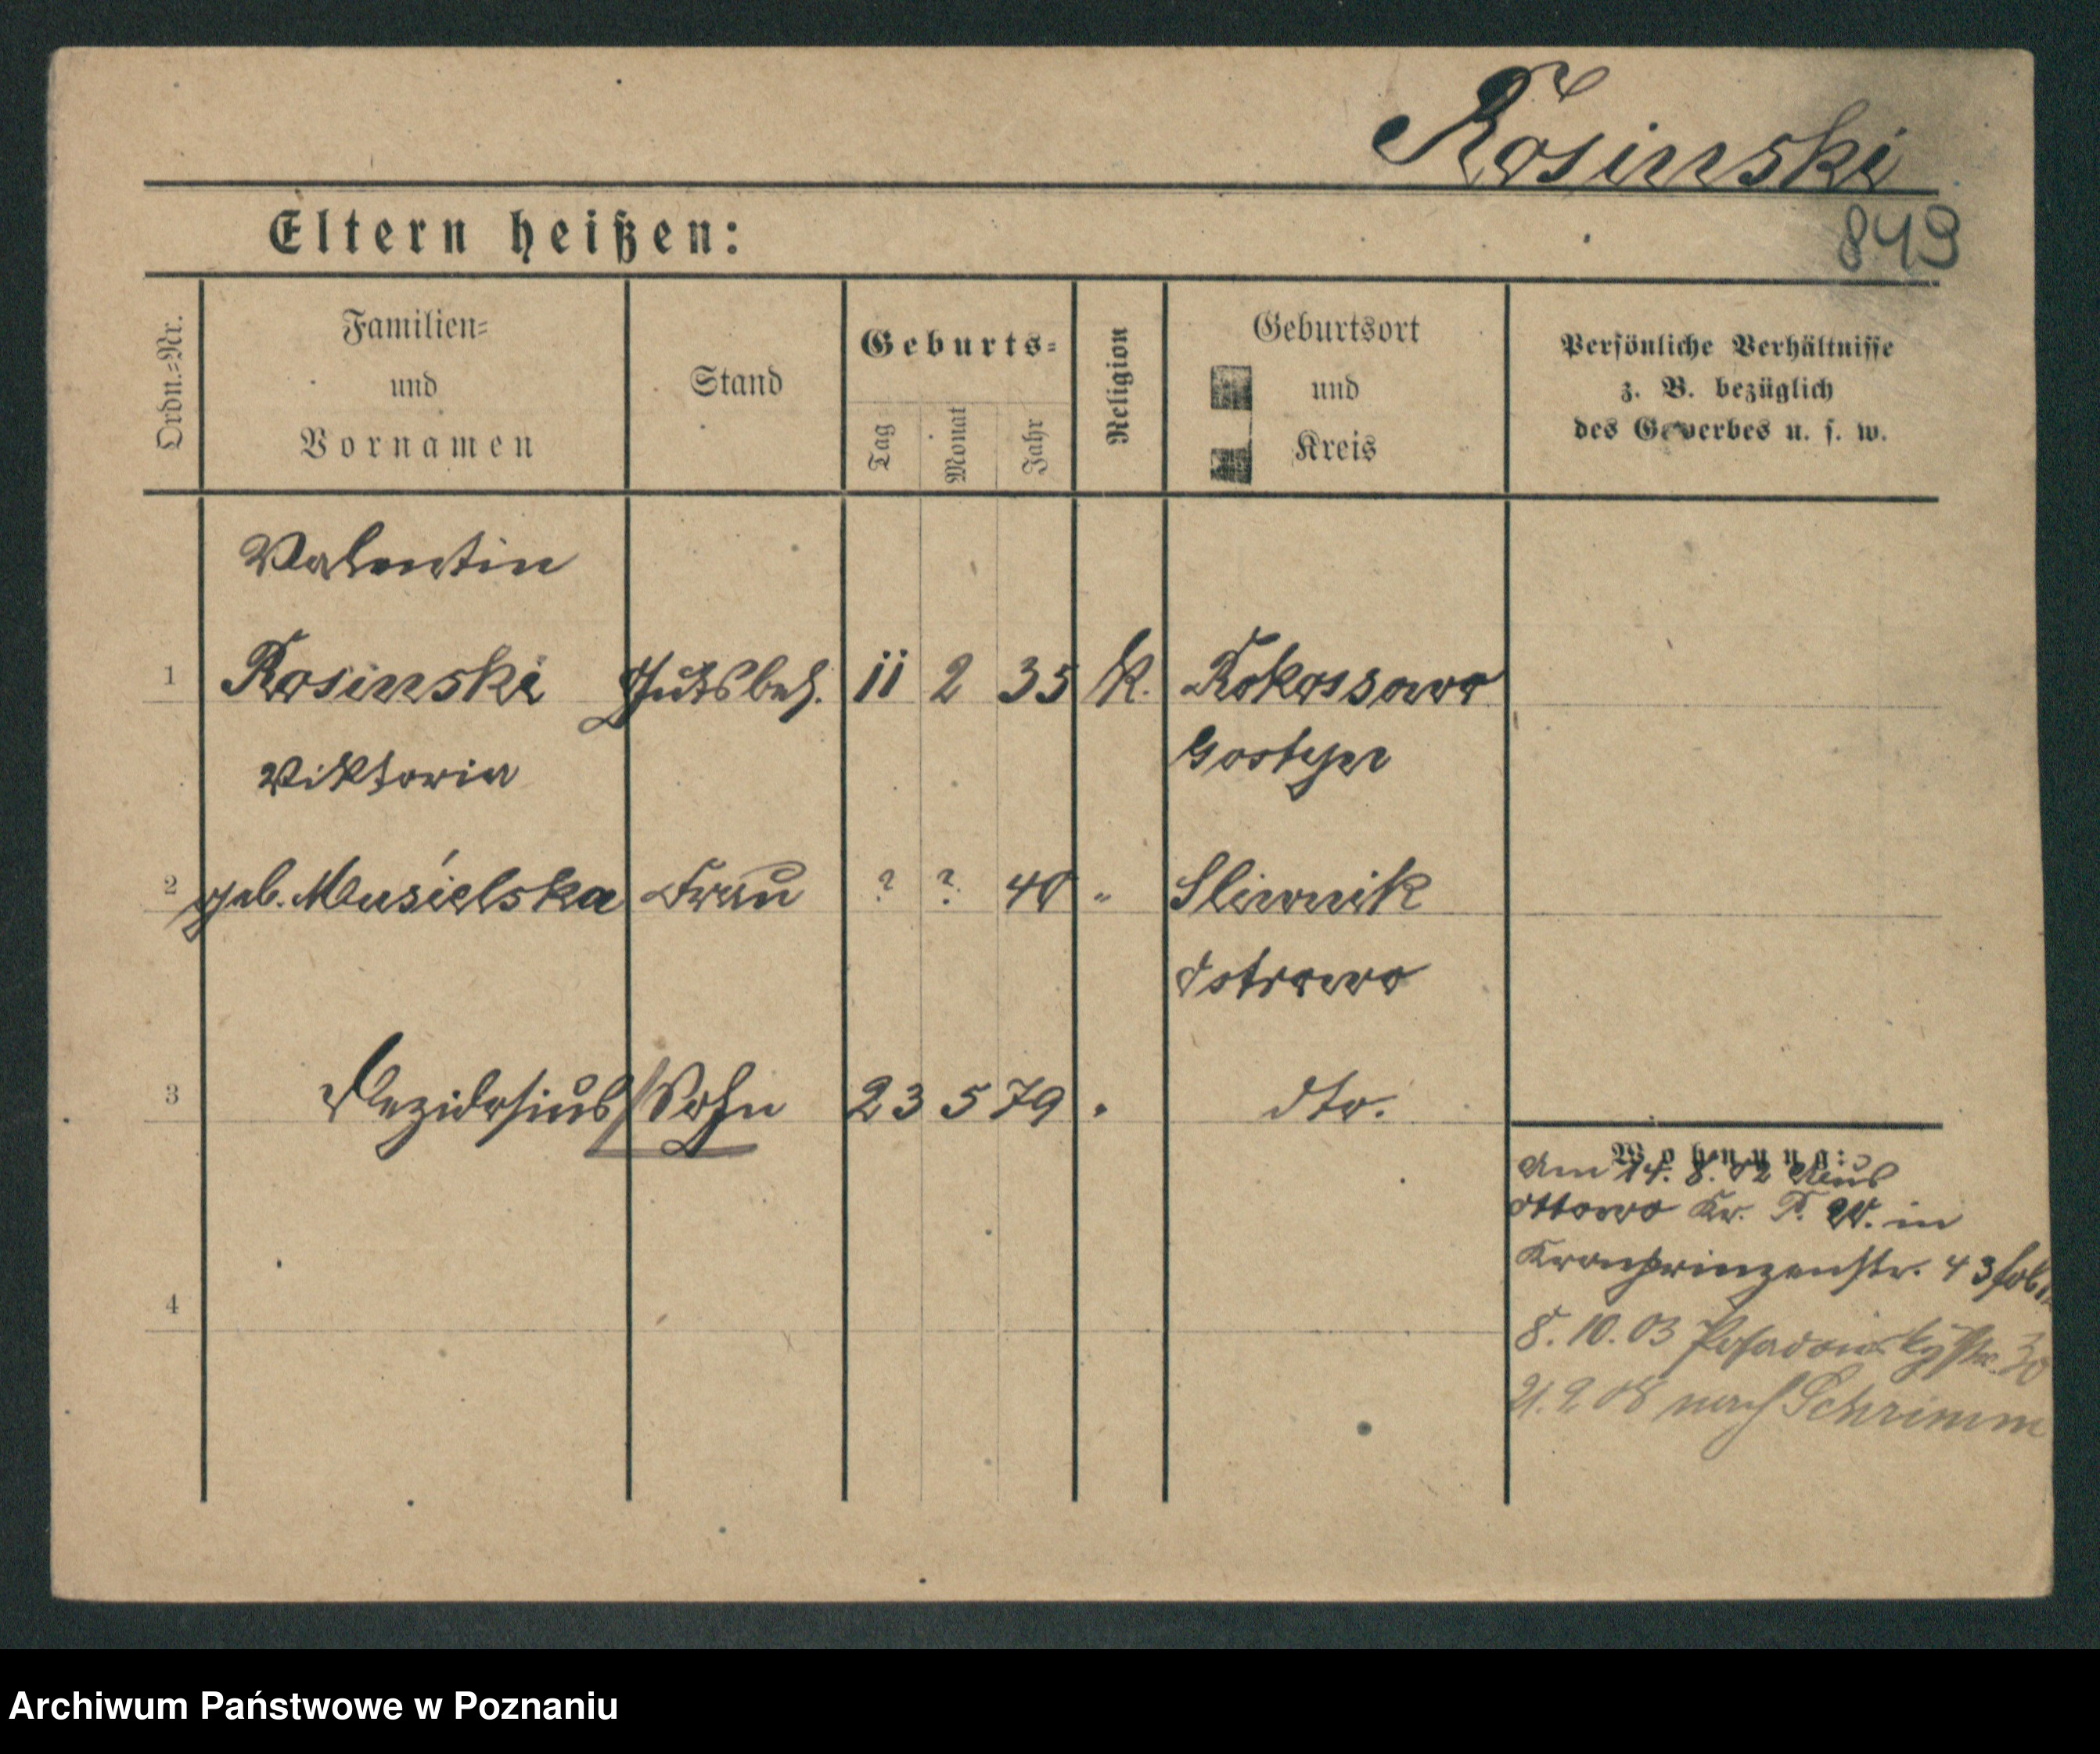 Rosinski
Eltern heißen:
849
Ordn.-Nr.
Familien-
und
Vornamen
Stand
Geburts-
Tag
Monat
Jahr
Religion
Geburtsort
und
Kreis
Persönliche Verhältnisse
z. B. bezüglich
des Gewerbes u. s. w.
Valentin
1 Rosinski Gutsbes. 11 2 35 K. Rokossowo
Viktoria Gostyn
2 geb. Musielska Frau ? ? 40 " Sliwnik
Ostrowo
3 Dezidosius Sohn 23 5 79 " dto.
Wohnung:
Am 14. 8. 02 aus
Ottowo Kr. P. W. in
Kronprinzenstr. 43
4
8. 10. 03 30
21. 9 08 nach Schrimm
Archiwum Państwowe w Poznaniu